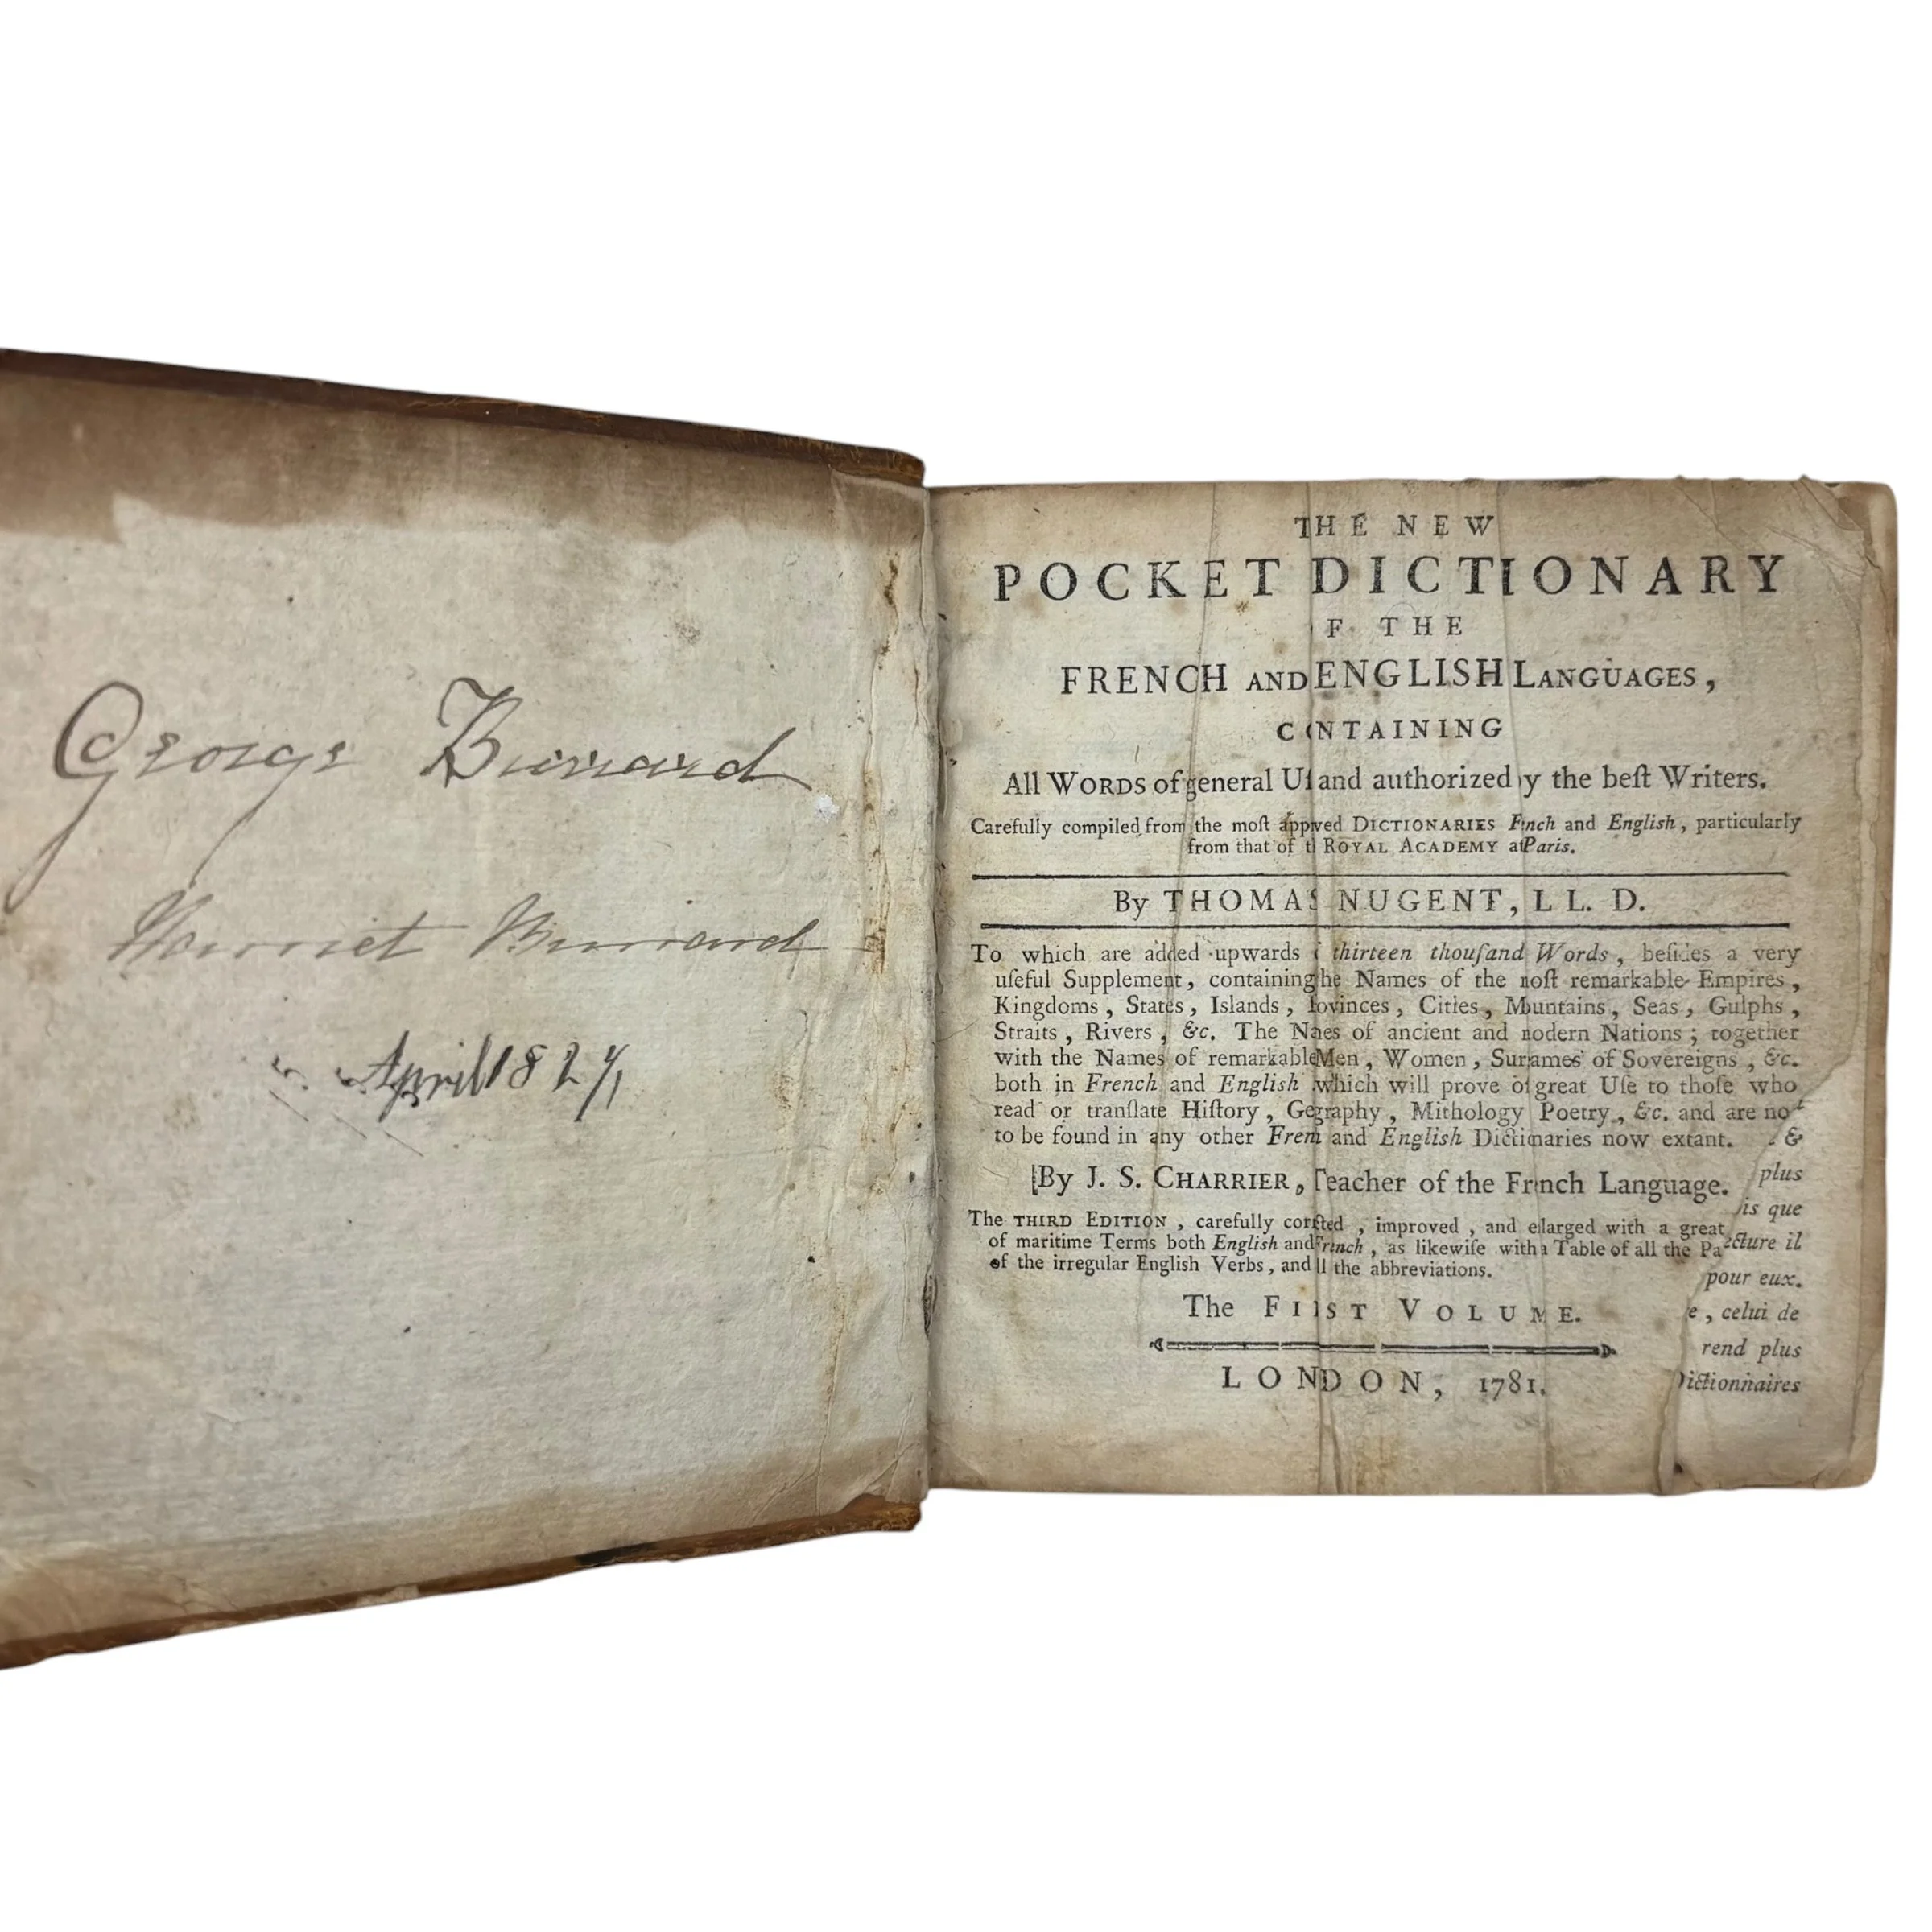 George Burrard
Harriet Burrard
April 1827
THE NEW
POCKET DICTIONARY
F THE
FRENCH AND ENGLISH LANGUAGES,
CONTAINING
All WORDS of general Uſ and authorized y the beſt Writers.
Carefully compiled from the moſt appved DICTIONARIES Fnch and English, particularly
from that of t ROYAL ACADEMY at Paris.
By THOMAS NUGENT, LL. D.
To which are added upwards thirteen thouſand Words, beſides a very
uſeful Supplement, containing he Names of the noſt remarkable Empires,
Kingdoms, States, Islands, ovinces, Cities, Muntains, Seas, Gulphs,
Straits, Rivers, &c. The Naes of ancient and nodern Nations; together
with the Names of remarkable Men, Women, Surames of Sovereigns, &c.
both in French and English which will prove of great Uſe to thoſe who
read or tranſlate Hiſtory, Gegraphy, Mithology Poetry, &c. and are not
to be found in any other Fren and English Dictinaries now extant. &
By J. S. CHARRIER, Teacher of the Frnch Language. plus
is que
The THIRD EDITION, carefully corrcted, improved, and elarged with a great
of maritime Terms both English and Frinch, as likewiſe with a Table of all the Pa ecture il
of the irregular English Verbs, and ll the abbreviations. pour eux.
The FIRST VOLUME. e, celui de
rend plus
LONDON, 1781. Dictionnaires